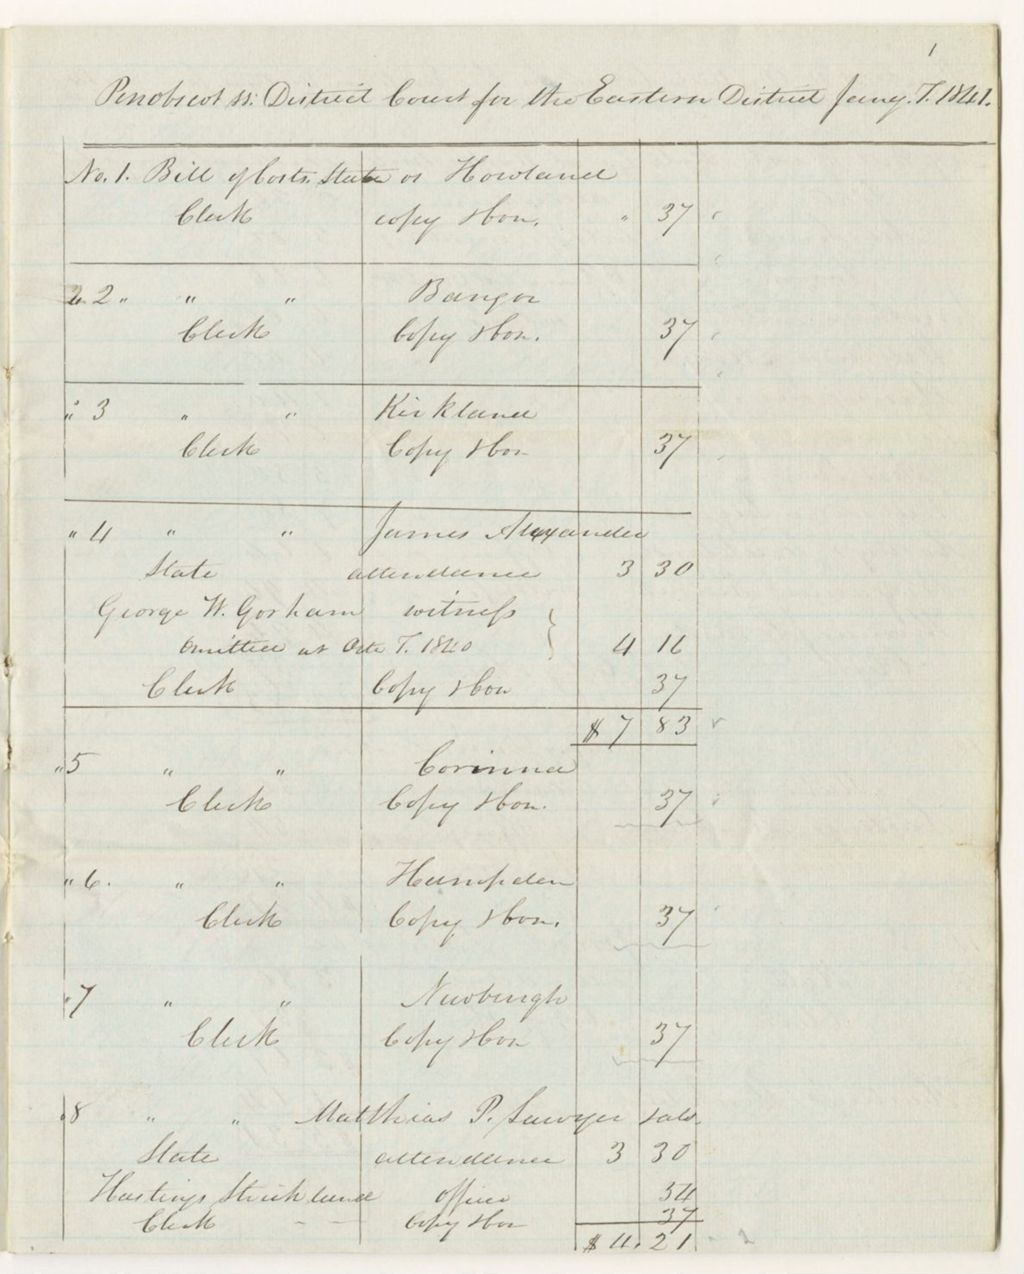 1
Penobscot ss: District Court for the Eastern District Jany. T. 1841.
No. 1. Bill of Costs. State vs Howland
Clerk copy & con. " 37
2 " " " Bangor
Clerk Copy & con. 37
" 3 " " Kirkland
Clerk Copy & con 37
" 4 " " James Alexander
State attendance 3 30
George W. Gorham witness
omitted at Octr T. 1840 } 4 16
Clerk Copy & con 37
$ 7 83
" 5 " " Corinna
Clerk Copy & con. 37
" 6. " " Hampden
Clerk Copy & con. 37
" 7 " " Newburgh
Clerk Copy & con 37
" 8 " " Matthias P. Sawyer & als
State attendance 3 30
Hastings Strickland officer 54
Clerk - - Copy & con 37
$ 4. 21